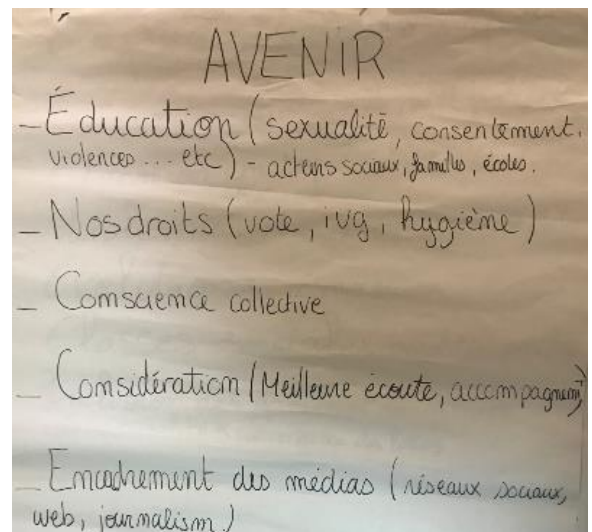 AVENIR
- Éducation (sexualité, consentement,
violences ... etc) - acteurs sociaux, familles, écoles.
- Nos droits (vote, ivg, hygiène)
- Conscience collective
- Considération (Meilleure écoute, accompagnemt)
- Encadrement des médias (réseaux sociaux,
web, journalism.)